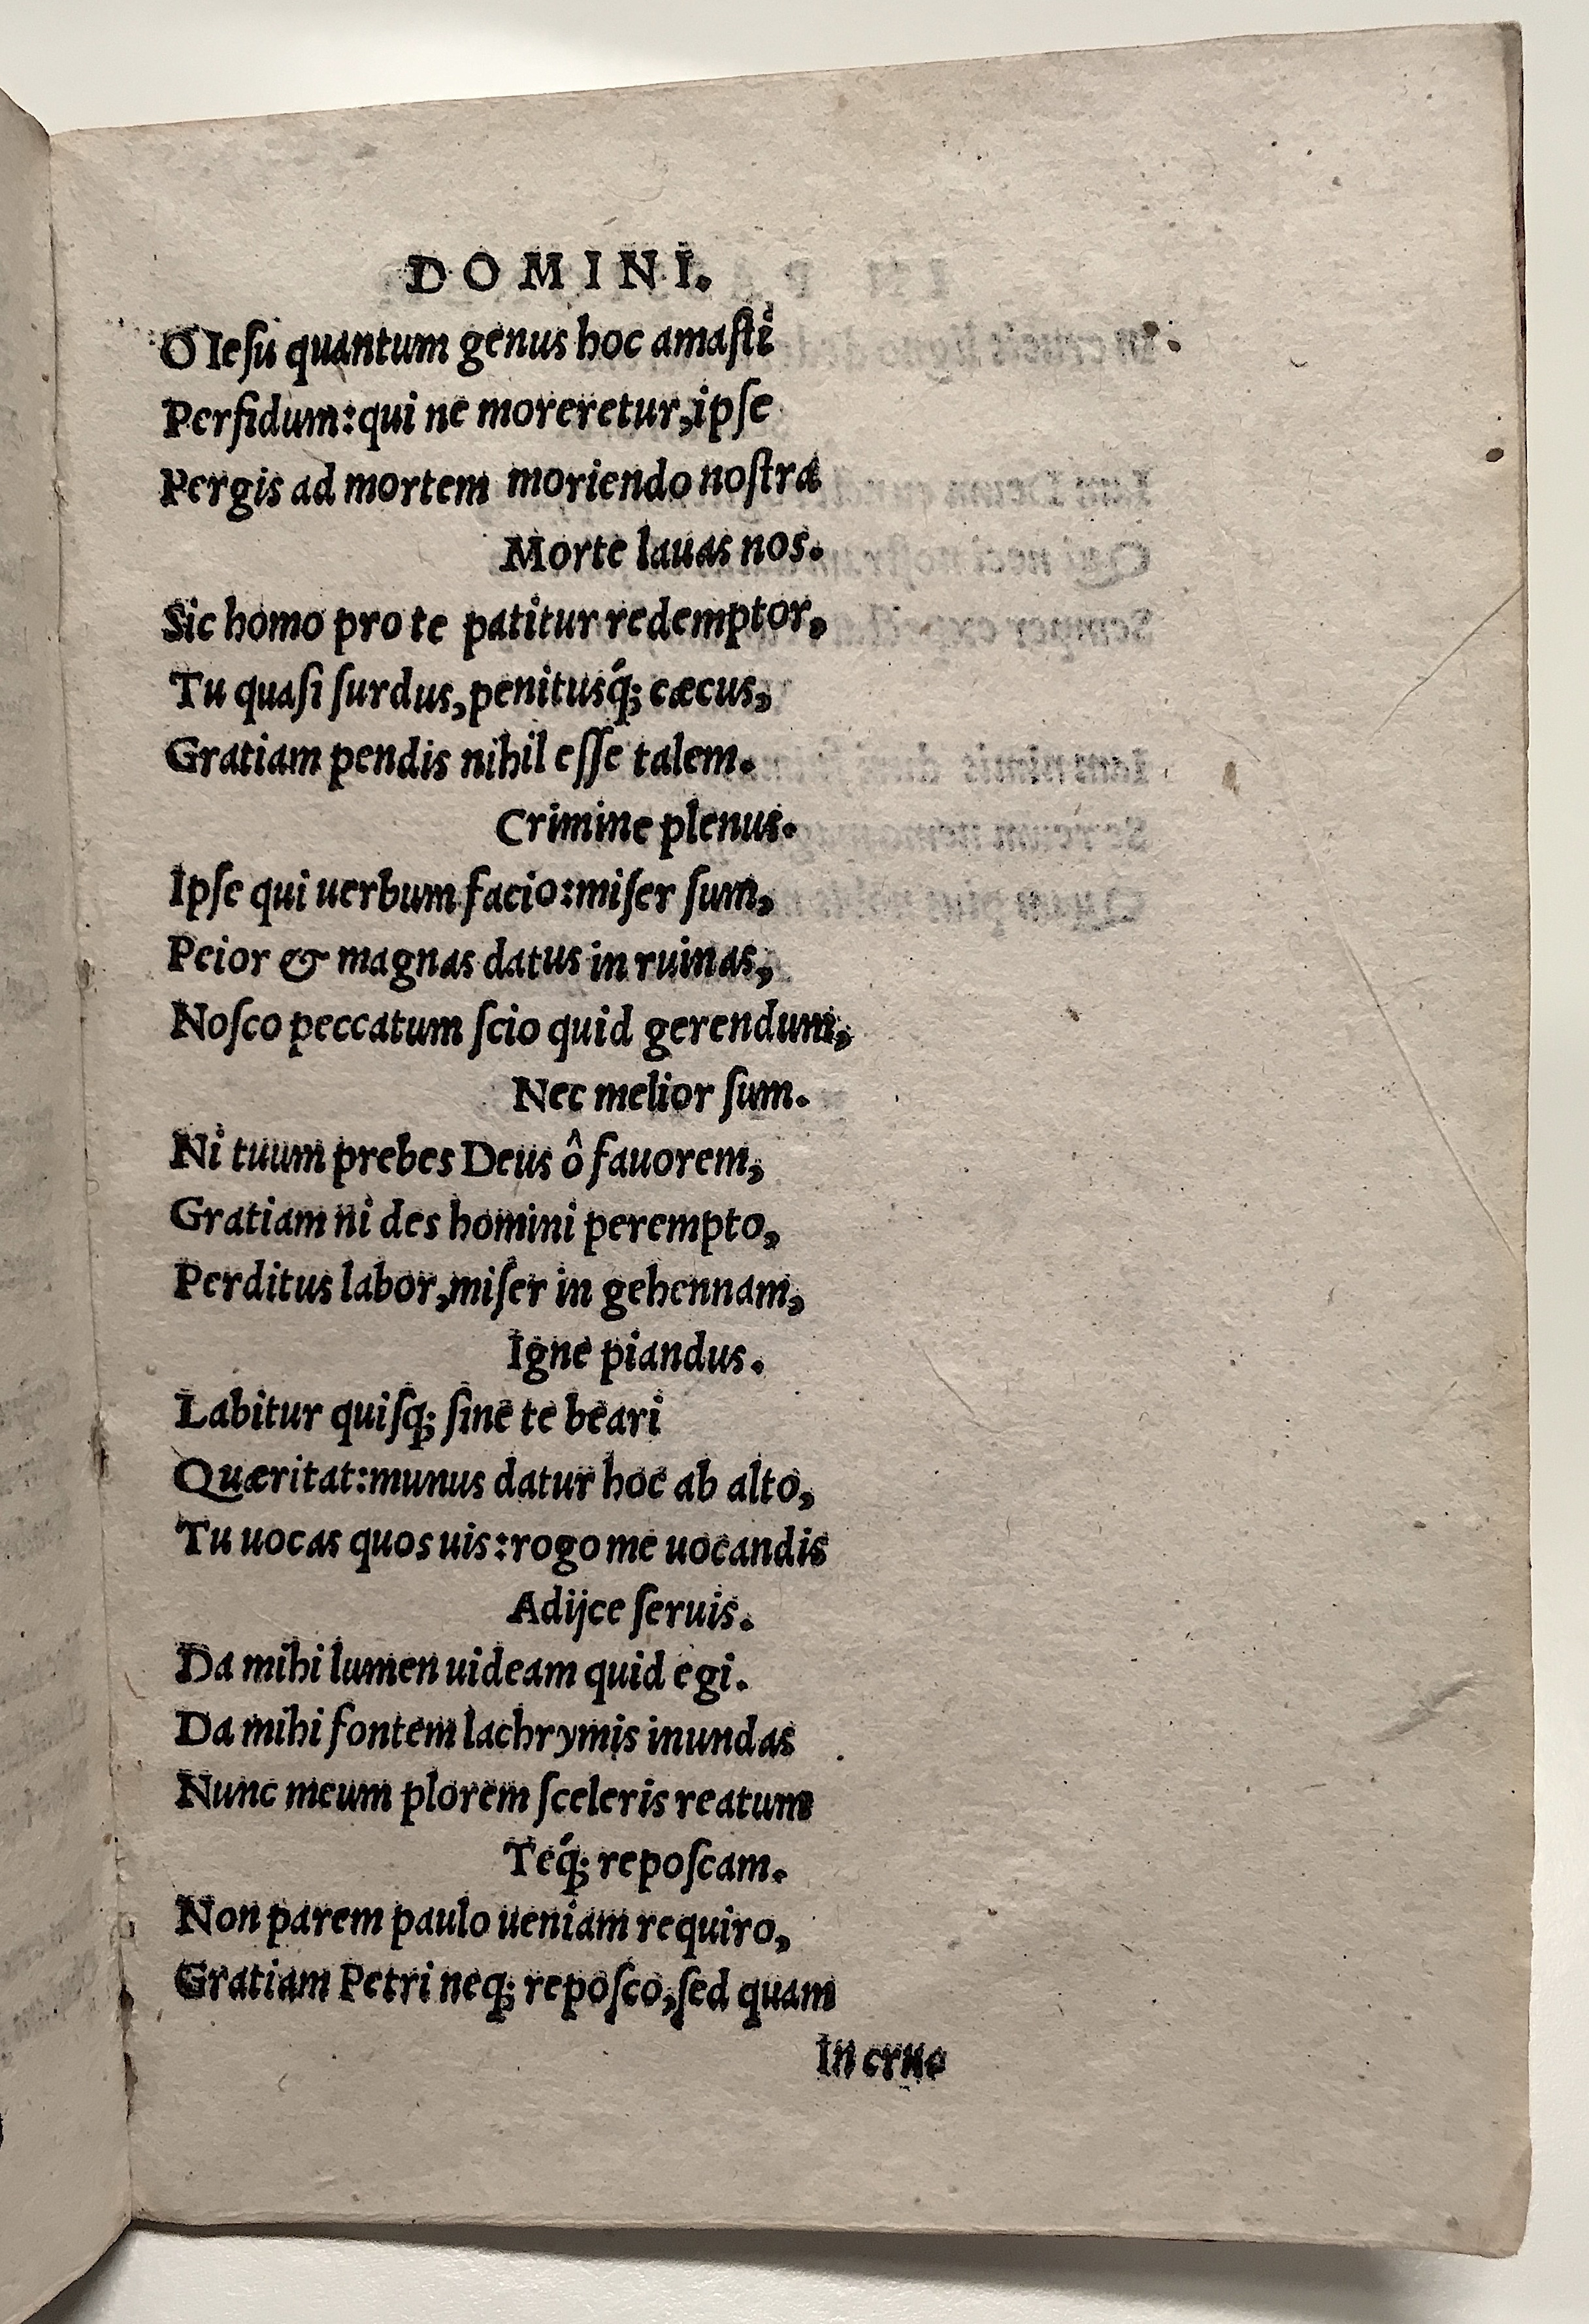 DOMINI.
O Iesu quantum genus hoc amasti
Perfidum: qui ne moreretur, ipse
Pergis ad mortem moriendo nostra
Morte lauas nos.
Sic homo pro te patitur redemptor,
Tu quasi surdus, penitusq́; cæcus,
Gratiam pendis nihil esse talem.
Crimine plenus.
Ipse qui uerbum facio: miser sum,
Peior & magnas datus in ruinas,
Nosco peccatum scio quid gerendum,
Nec melior sum.
Ni tuum prebes Deus ô fauorem,
Gratiam ni des homini perempto,
Perditus labor, miser in gehennam,
Igne piandus.
Labitur quisq; sine te beari
Quæritat: munus datur hoc ab alto,
Tu uocas quos uis: rogo me uocandis
Adijce seruis.
Da mihi lumen uideam quid egi.
Da mihi fontem lachrymis inundas
Nunc meum plorem sceleris reatum
Teq́; reposcam.
Non parem paulo ueniam requiro,
Gratiam Petri neq; reposco, sed quam
In cruc